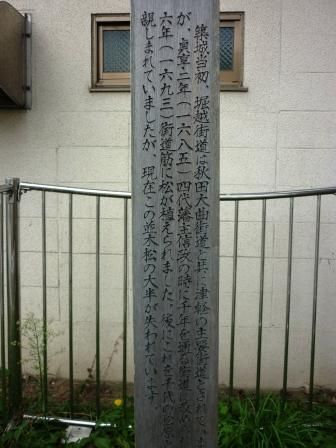 築城当初、堀越街道は秋田大曲街道と共に津軽の主要街道とされてい
が、貞享二年(一六八五)四代藩主信政の時に千年を通る街道に改め
六年(一六九三)街道筋に松が植えられました。後にこれを千代の松並
親しまれていましたが、現在この並木松の大半が失われています